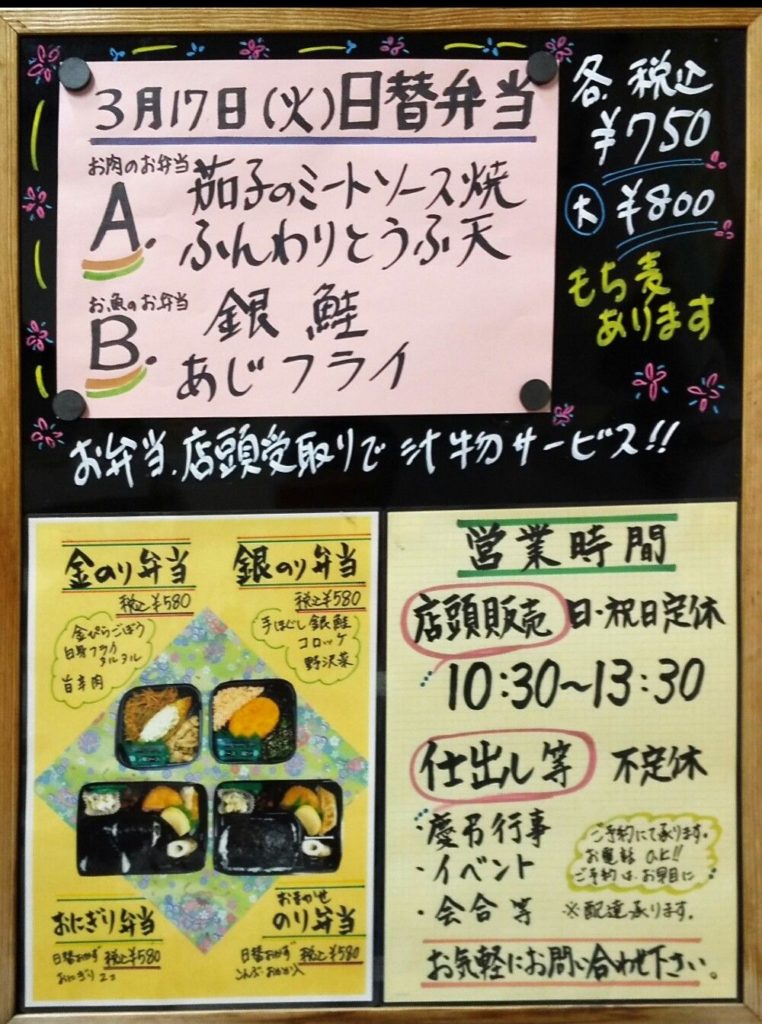 3月17日(火)日替弁当
お肉のお弁当
A.
茄子のミートソース焼
ふんわりとうふ天
お魚のお弁当
B.
銀鮭
あじフライ
各税込
¥750
大 ¥800
もち麦
あります
お弁当、店頭受取りで汁物サービス!!
金のり弁当
税込¥580
金ぴらごぼう
白身フライ
タルタル
旨辛肉
銀のり弁当
税込¥580
手ほぐし銀鮭
コロッケ
野沢菜
おにぎり弁当
日替おかず 税込¥580
おにぎり2コ
おまかせ
のり弁当
日替おかず 税込¥580
こんぶ・おかか入
営業時間
店頭販売 日・祝日定休
10:30〜13:30
仕出し等 不定休
・慶弔行事
・イベント
・会合等
ご予約にて承ります。
お電話OK!!
ご予約は、お早目に
※配達承ります。
お気軽にお問い合わせ下さい。